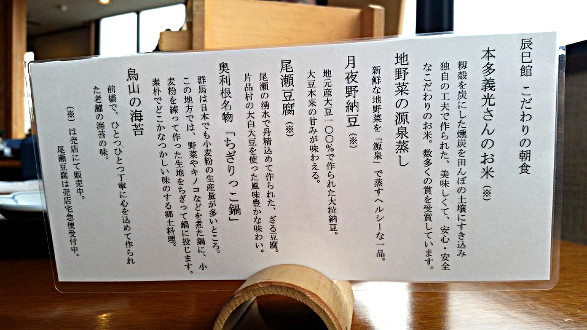 辰巳館 こだわりの朝食
本多義光さんのお米（※）
籾殻を炭にした燻炭を田んぼの土壌にすき込み
独自の工夫で作られた、美味しくて、安心・安全
なこだわりのお米。数多くの賞を受賞しています。
地野菜の源泉蒸し
新鮮な地野菜を「源泉」で蒸すヘルシーな一品。
月夜野納豆（※）
地元産大豆一〇〇％で作られた大粒納豆。
大豆本来の甘みが味わえる。
尾瀬豆腐（※）
尾瀬の湧水で丹精込めて作られた、ざる豆腐。
片品村の大白大豆を使った風味豊かな味わい。
奥利根名物「ちぎりっこ鍋」
群馬は日本でも小麦粉の生産量が多いところ。
この地方では、野菜やキノコなどを煮た鍋に、小
麦粉を練って作った生地をちぎって鍋に投じます。
素朴でどこかなつかしい味のする郷土料理。
鳥山の海苔
前橋で、ひとつひとつ丁寧に心を込めて作られ
た老舗の海苔の味。
（※）は売店にて販売中。
尾瀬豆腐は売店宅急便受付中。